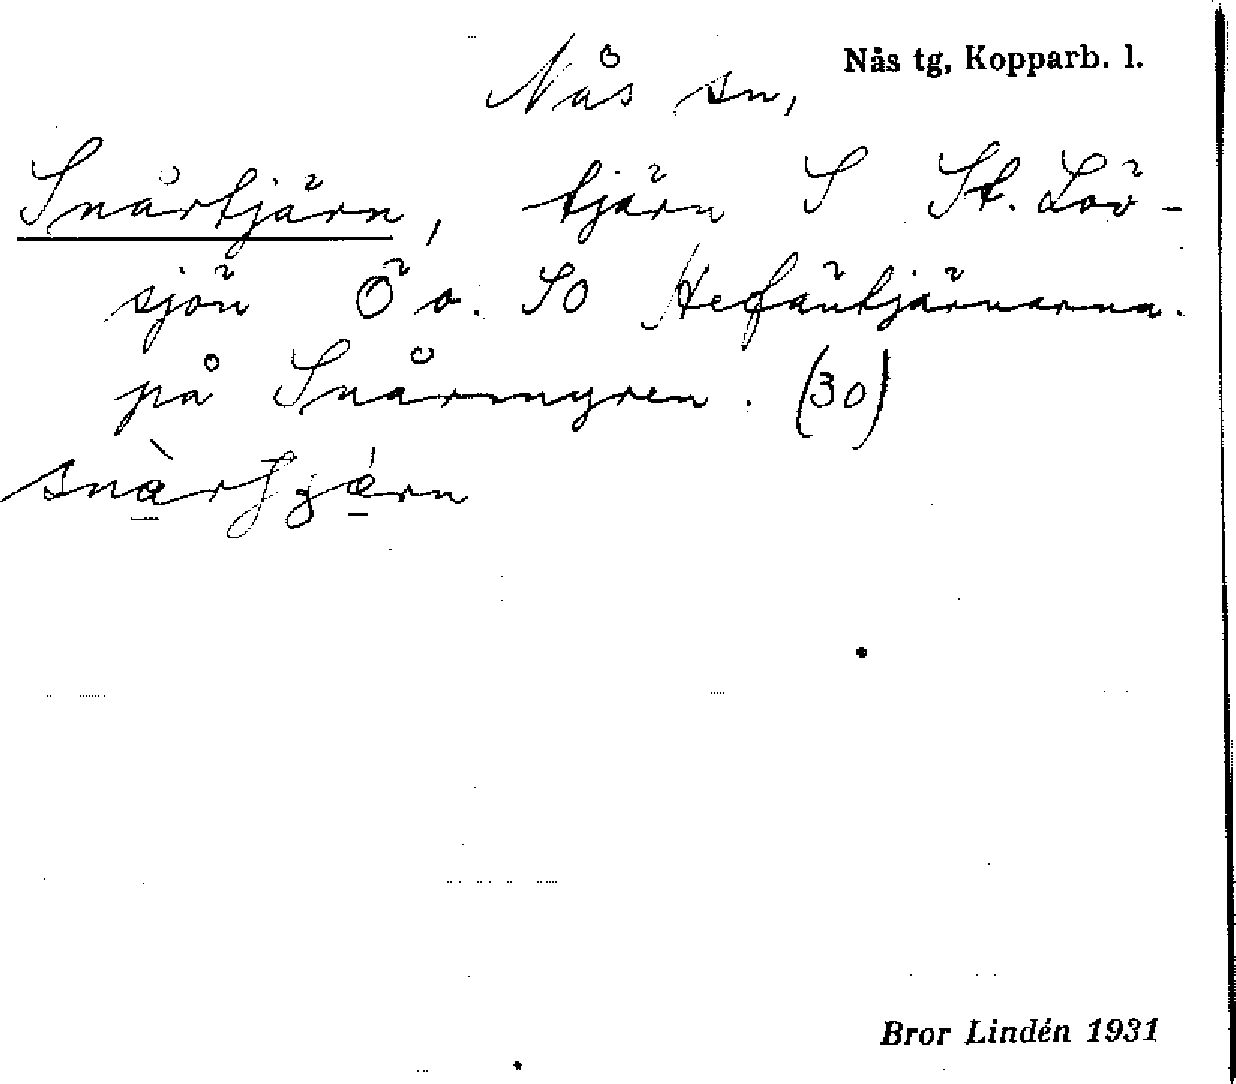 Nås tg, Kopparb. l.
Nås sn,
Snårtjärn, tjärn S St. Löv-
sjön Ö o. SO Hefäntjärnarna.
på Snårmyren. (30)
Bror Lindén 1931